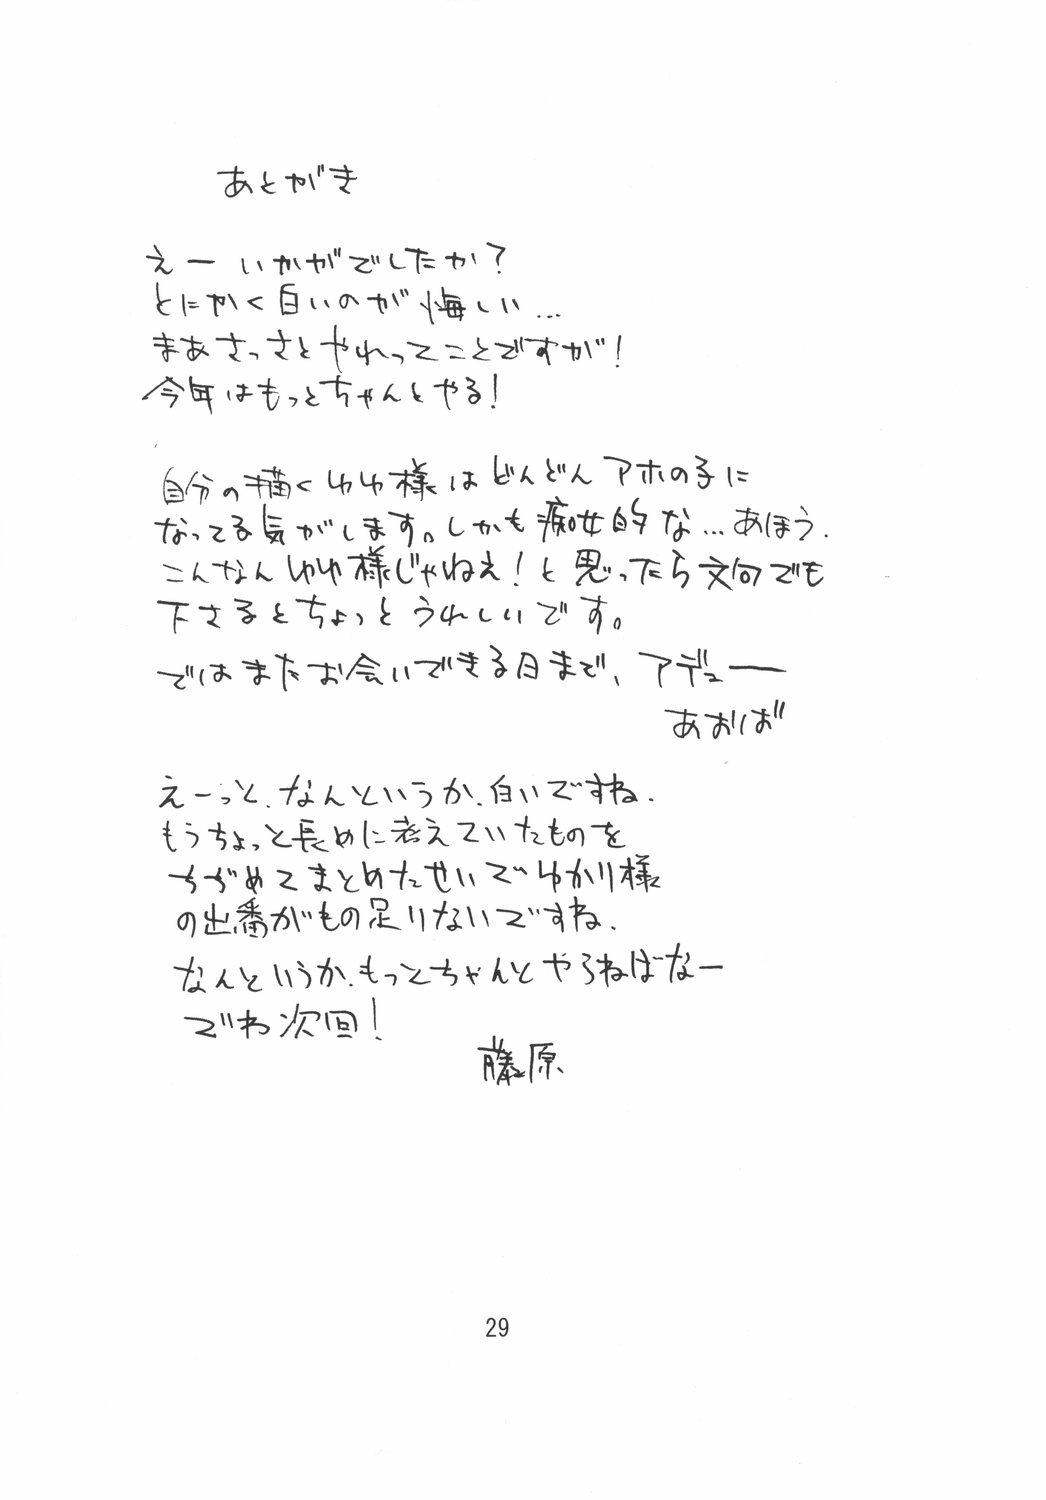 あとがき
えー いかがでしたか?
とにかく白いのが悔しい…
まあさっさとやれってことですが!
今年はもっとちゃんとやる!
自分の描くゆゆ様はどんどんアホの子に
なってる気がします。しかも痴女的な…あほう.
こんなんゆゆ様じゃねぇ!と思ったら文句でも
下さるとちょっとうれしいです。
ではまたお会いできる日まで、アデュー
あおば
えーっと、なんというか、白いですね.
もうちょっと長めに考えていたものを
ちぢめてまとめたせいでゆかり様
の出番がもの足りないですね.
なんというか、もっとちゃんとやらねばなー
でわ次回!
藤原
29